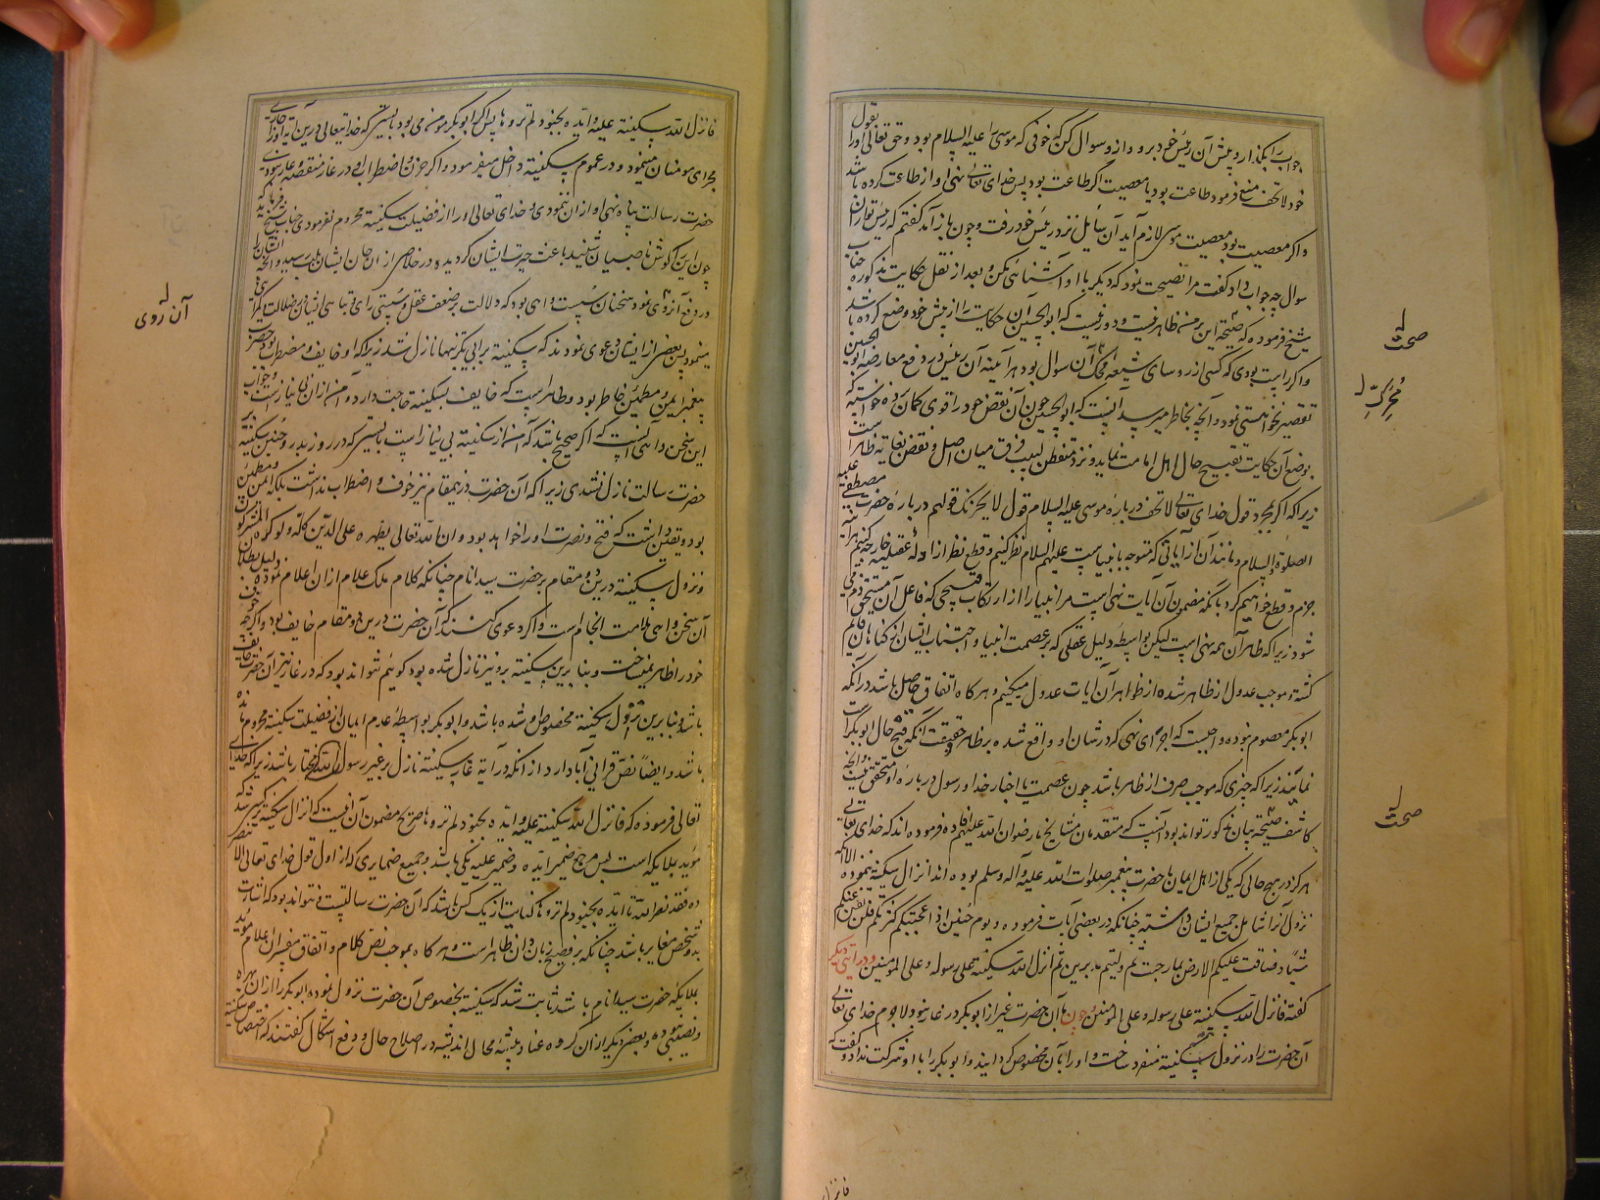 جواب را بگذار و پیش آن رئیس خود برو و از و سوال کن که خوفی که موسی را علیه السلام بود و حق تعالی او را بقول
خود لاتخف منع فرمود طاعت بود یا معصیت اگر طاعت بود پس خدای تعالی نهی او از طاعت کرده باشد
و اگر معصیت بود معصیت موسی لازم آید آن سایل نزد رئیس خود رفت و چون باز آمد گفتم که رئیس تو از این
سوال چه جواب داد گفت مرا نصیحت نمود که دیگر با او آشنائی مکن و بعد از نقل حکایت مذکوره جناب
شیخ فرموده که صحة این بر من ظاهر نیست و دور نیست که ابو الحسین آن حکایت را از پیش خود وضع کرده باشد
و اگر راست بودی که کسی از روسای شیعه محرک آن سوال بود هر آینه آن رئیس در دفع معارضه ابو الحسین
تقصیر نخواستی نمود و آنچه بخاطر میرسد اینست که ابو الحسین چون آن نقض خود را قوی کمان زده خواسته که
بوضع آن حکایت تقبیح حال اهل امامت نماید و نزد متفطن لبیب فرق میان اصل و نقض بغایة ظاهر است
زیرا که اگر بمجرد قول خدای تعالی لاتخف درباره موسی علیه السلام قول لا یحزنک قولهم درباره حضرت مصطفی علیه
الصلوة و السلام و مانند آن از آیاتی که متوجه بانبیاست علیهم السلام نظر کنیم و قطع نظر از ادله عقلیه خارجه کنیم هر آینه
جزم و قطع خواهیم کرد بانکه مضمون آن آیات نهی است مر انبیا را از ارتکاب قبیحی که فاعل آن مستحق ذم می
شود زیرا که ظاهر آن همه نهی است لیکن بواسطه دلیل عقلی که بر عصمت انبیا و اجتناب ایشان از گناهان قایم
گشته و موجب عدول از ظاهر شده از ظواهر آن آیات عدول میکنیم و هر کاه اتفاق حاصل باشد در آنکه
ابوبکر معصوم نبوده واجبست که اجرای نهی که در شان او واقع شده بر ظاهر و حقیقت آنکه قبح حال ابوبکر است
نمایند زیرا که چیزی که موجب صرف از ظاهر باشد چون عصمت یا اخبار خدا و رسول درباره او متحقق نیست و آنچه
کاشف صحة بیان مذکور تواند بود آنست که متقدمان مشایخ ما رضوان الله علیهم افاده فرموده اند که خدای تعالی
هرگز در هیچ حالی که یکی از اهل ایمان با حضرت پیغمبر صلوات الله علیه و آله وسلم بوده اند انزال سکینه ننموده الا آنکه
نزول آنرا شامل جمیع ایشان داشته چنانکه در بعضی آیات فرموده و یوم حنین اذ اعجبتکم کثرتکم فلن تغن عنکم
شیئا و ضاقت علیکم الارض بما رحبت ثم ولیتم مدبرین ثم انزل الله سکینته علی رسوله و علی المومنین و در آیتی دیگر
گفته فانزل الله سکینته علی رسوله و علی المومنین چون با آن حضرت غیر از ابوبکر در غار نبود لاجرم خدای تعالی
آن حضرت را در نزول سکینته منفرد ساخت و او را بآن مخصوص گردانید و ابوبکر را با او شرکت نداد و گفت که
صحت
محرک
صحت
فانزل
فانزل الله سکینته علیه و ایده بجنود لم تروها پس اگر ابوبکر مومن می بود بایستی که خدا تعالی درین آیه او را جاری
مجرای مومنان مینمود و در عموم سکینته داخل میفرمود و اگر حزن و اضطراب او در غار منقصة و عار نبودی
حضرت رسالت پناه نهی او از ان ننمودی و خدای تعالی او را از فضیلت سکینته محروم نفرمودی جناب شیخ فرماید که
چون این را گوش ناصبیان شنید باعث حیرت ایشان گردیده در خلاصی از ان جان ایشان بلب رسید و آنچه ایشان را
در دفع آن روی نمود سخنان سست و واهی بود که دلالت بر ضعف عقل و سستی رای و تباهی ایشان بر ضلالت و گمراهی
مینمود پس بعضی از ایشان دعوی نمودند که سکینته بر ابی بکر تنها نازل شد زیرا که او خایف و مضطر بود و حضرت
پیغمبر ایمن و مطمئن خاطر بود و ظاهر است که خایف بسکینته حاجت دارد و آمن از ان بی نیاز است و جواب
این سخن واهی آنست که اگر صحیح باشد که آمن از سکینته بی نیاز است بایستی که در روز بدر و حنین سکینته بر
حضرت رسالت نازل نشدی زیرا که آن حضرت درین مقام نیز خوف و اضطراب نداشت بلکه ایمن و مطمئن
بود و یقین داشت که فتح و نصرت او را خواهد بود و ان الله تعالی یظهره علی الدین کله و لو کره المشرکون
و نزول سکینته درین دو مقام بر حضرت سید انام چنانکه کلام ملک علام از ان اعلام نموده دلیل بطلان
آن سخن واهی ملامت انجام است و اگر دعوی کنند که آن حضرت درین دو مقام خایف بود و اگر چه خوف
خود را ظاهر نمیساخت و بنابرین سکینته برو نیز نازل شده بود گوئیم شواند بود که در غار نیز آن حضرت خایف
باشد و بنا برین نزول سکینته مخصوص او شده باشد و ابوبکر بواسطه عدم ایمان از فضیلت سکینته محروم مانده
باشد و ایضا نص قرآنی آبا دارد از آنکه در آیه غار سکینته نازل بر غیر رسول الله مختار باشد زیرا که خدای
تعالی فرموده که فانزل الله سکینته علیه و ایده بجنود لم تروها صریح مضمون آن آنست که انزال سکینته بر کسی شد که
موید بملایکه است پس مرجع ضمیر ایده و ضمیر علیه یکی باشد و جمیع ضمایری که از اول قول خدای تعالی الا تنصروه
فقد نصر الله تا ایده بجنود لم تروها کنایت از یک کس باشد که آن حضرت رسالتست و نتواند بود که اشارت
بدو شخص مغایر باشد چنانکه بر فصیح زبان دان ظاهر است و هر کاه بموجب نص کلام و اتفاق مفسران اعلام موید
بملایکه حضرت سید انام باشد ثابت شد که سکینته بخصوص آن حضرت نزول نموده ابوبکر را از ان بهره
و نصیبی نبوده و بعضی دیگر از آن گروه عناد پیشه محال اندیشه در اصلاح حال و دفع اشکال گفتند که اختصاص سکینته
آن روی